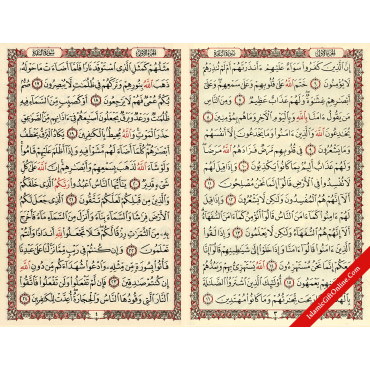 سورة البقرة
الجزء الاول
إِنَّ الَّذِينَ كَفَرُوا سَوَاءٌ عَلَيْهِمْ ءَأَنذَرْتَهُمْ أَمْ لَمْ تُنذِرْهُمْ
لَا يُؤْمِنُونَ ٦ خَتَمَ اللهُ عَلَىٰ قُلُوبِهِمْ وَعَلَىٰ سَمْعِهِمْ وَعَلَىٰ
أَبْصَٰرِهِمْ غِشَٰوَةٌ وَلَهُمْ عَذَابٌ عَظِيمٌ ٧ وَمِنَ النَّاسِ
مَن يَقُولُ ءَامَنَّا بِاللهِ وَبِالْيَوْمِ الْءَاخِرِ وَمَا هُم بِمُؤْمِنِينَ ٨
يُخَٰدِعُونَ اللهَ وَالَّذِينَ ءَامَنُوا وَمَا يَخْدَعُونَ إِلَّا أَنفُسَهُمْ
وَمَا يَشْعُرُونَ ٩ فِي قُلُوبِهِم مَّرَضٌ فَزَادَهُمُ اللهُ مَرَضًا
وَلَهُمْ عَذَابٌ أَلِيمٌ بِمَا كَانُوا يَكْذِبُونَ ١٠ وَإِذَا قِيلَ لَهُمْ
لَا تُفْسِدُوا فِي الْأَرْضِ قَالُوا إِنَّمَا نَحْنُ مُصْلِحُونَ ١١
أَلَا إِنَّهُمْ هُمُ الْمُفْسِدُونَ وَلَٰكِن لَّا يَشْعُرُونَ ١٢ وَإِذَا قِيلَ
لَهُمْ ءَامِنُوا كَمَا ءَامَنَ النَّاسُ قَالُوا أَنُؤْمِنُ كَمَا ءَامَنَ السُّفَهَاءُ
أَلَا إِنَّهُمْ هُمُ السُّفَهَاءُ وَلَٰكِن لَّا يَعْلَمُونَ ١٣ وَإِذَا لَقُوا
الَّذِينَ ءَامَنُوا قَالُوا ءَامَنَّا وَإِذَا خَلَوْا إِلَىٰ شَيَٰطِينِهِمْ قَالُوا
إِنَّا مَعَكُمْ إِنَّمَا نَحْنُ مُسْتَهْزِءُونَ ١٤ اللهُ يَسْتَهْزِئُ بِهِمْ وَيَمُدُّهُمْ
فِي طُغْيَٰنِهِمْ يَعْمَهُونَ ١٥ أُولَٰئِكَ الَّذِينَ اشْتَرَوُا الضَّلَٰلَةَ
بِالْهُدَىٰ فَمَا رَبِحَت تِّجَٰرَتُهُمْ وَمَا كَانُوا مُهْتَدِينَ ١٦
٣
سورة البقرة
الجزء الاول
مَثَلُهُمْ كَمَثَلِ الَّذِي اسْتَوْقَدَ نَارًا فَلَمَّا أَضَاءَتْ مَا حَوْلَهُ
ذَهَبَ اللهُ بِنُورِهِمْ وَتَرَكَهُمْ فِي ظُلُمَٰتٍ لَّا يُبْصِرُونَ ١٧ صُمٌّ
بُكْمٌ عُمْيٌ فَهُمْ لَا يَرْجِعُونَ ١٨ أَوْ كَصَيِّبٍ مِّنَ السَّمَاءِ فِيهِ
ظُلُمَٰتٌ وَرَعْدٌ وَبَرْقٌ يَجْعَلُونَ أَصَٰبِعَهُمْ فِي ءَاذَانِهِم مِّنَ الصَّوَٰعِقِ
حَذَرَ الْمَوْتِ وَاللهُ مُحِيطٌ بِالْكَٰفِرِينَ ١٩ يَكَادُ الْبَرْقُ يَخْطَفُ
أَبْصَٰرَهُمْ كُلَّمَا أَضَاءَ لَهُم مَّشَوْا فِيهِ وَإِذَا أَظْلَمَ عَلَيْهِمْ قَامُوا
وَلَوْ شَاءَ اللهُ لَذَهَبَ بِسَمْعِهِمْ وَأَبْصَٰرِهِمْ إِنَّ اللهَ عَلَىٰ كُلِّ
شَيْءٍ قَدِيرٌ ٢٠ يَٰأَيُّهَا النَّاسُ اعْبُدُوا رَبَّكُمُ الَّذِي خَلَقَكُمْ
وَالَّذِينَ مِن قَبْلِكُمْ لَعَلَّكُمْ تَتَّقُونَ ٢١ الَّذِي جَعَلَ لَكُمُ
الْأَرْضَ فِرَٰشًا وَالسَّمَاءَ بِنَاءً وَأَنزَلَ مِنَ السَّمَاءِ مَاءً فَأَخْرَجَ
بِهِ مِنَ الثَّمَرَٰتِ رِزْقًا لَّكُمْ فَلَا تَجْعَلُوا لِلهِ أَندَادًا وَأَنتُمْ
تَعْلَمُونَ ٢٢ وَإِن كُنتُمْ فِي رَيْبٍ مِّمَّا نَزَّلْنَا عَلَىٰ عَبْدِنَا
فَأْتُوا بِسُورَةٍ مِّن مِّثْلِهِ وَادْعُوا شُهَدَاءَكُم مِّن دُونِ اللهِ
إِن كُنتُمْ صَٰدِقِينَ ٢٣ فَإِن لَّمْ تَفْعَلُوا وَلَن تَفْعَلُوا فَاتَّقُوا
النَّارَ الَّتِي وَقُودُهَا النَّاسُ وَالْحِجَارَةُ أُعِدَّتْ لِلْكَٰفِرِينَ ٢٤
٤
IslamicGiftOnline.Com